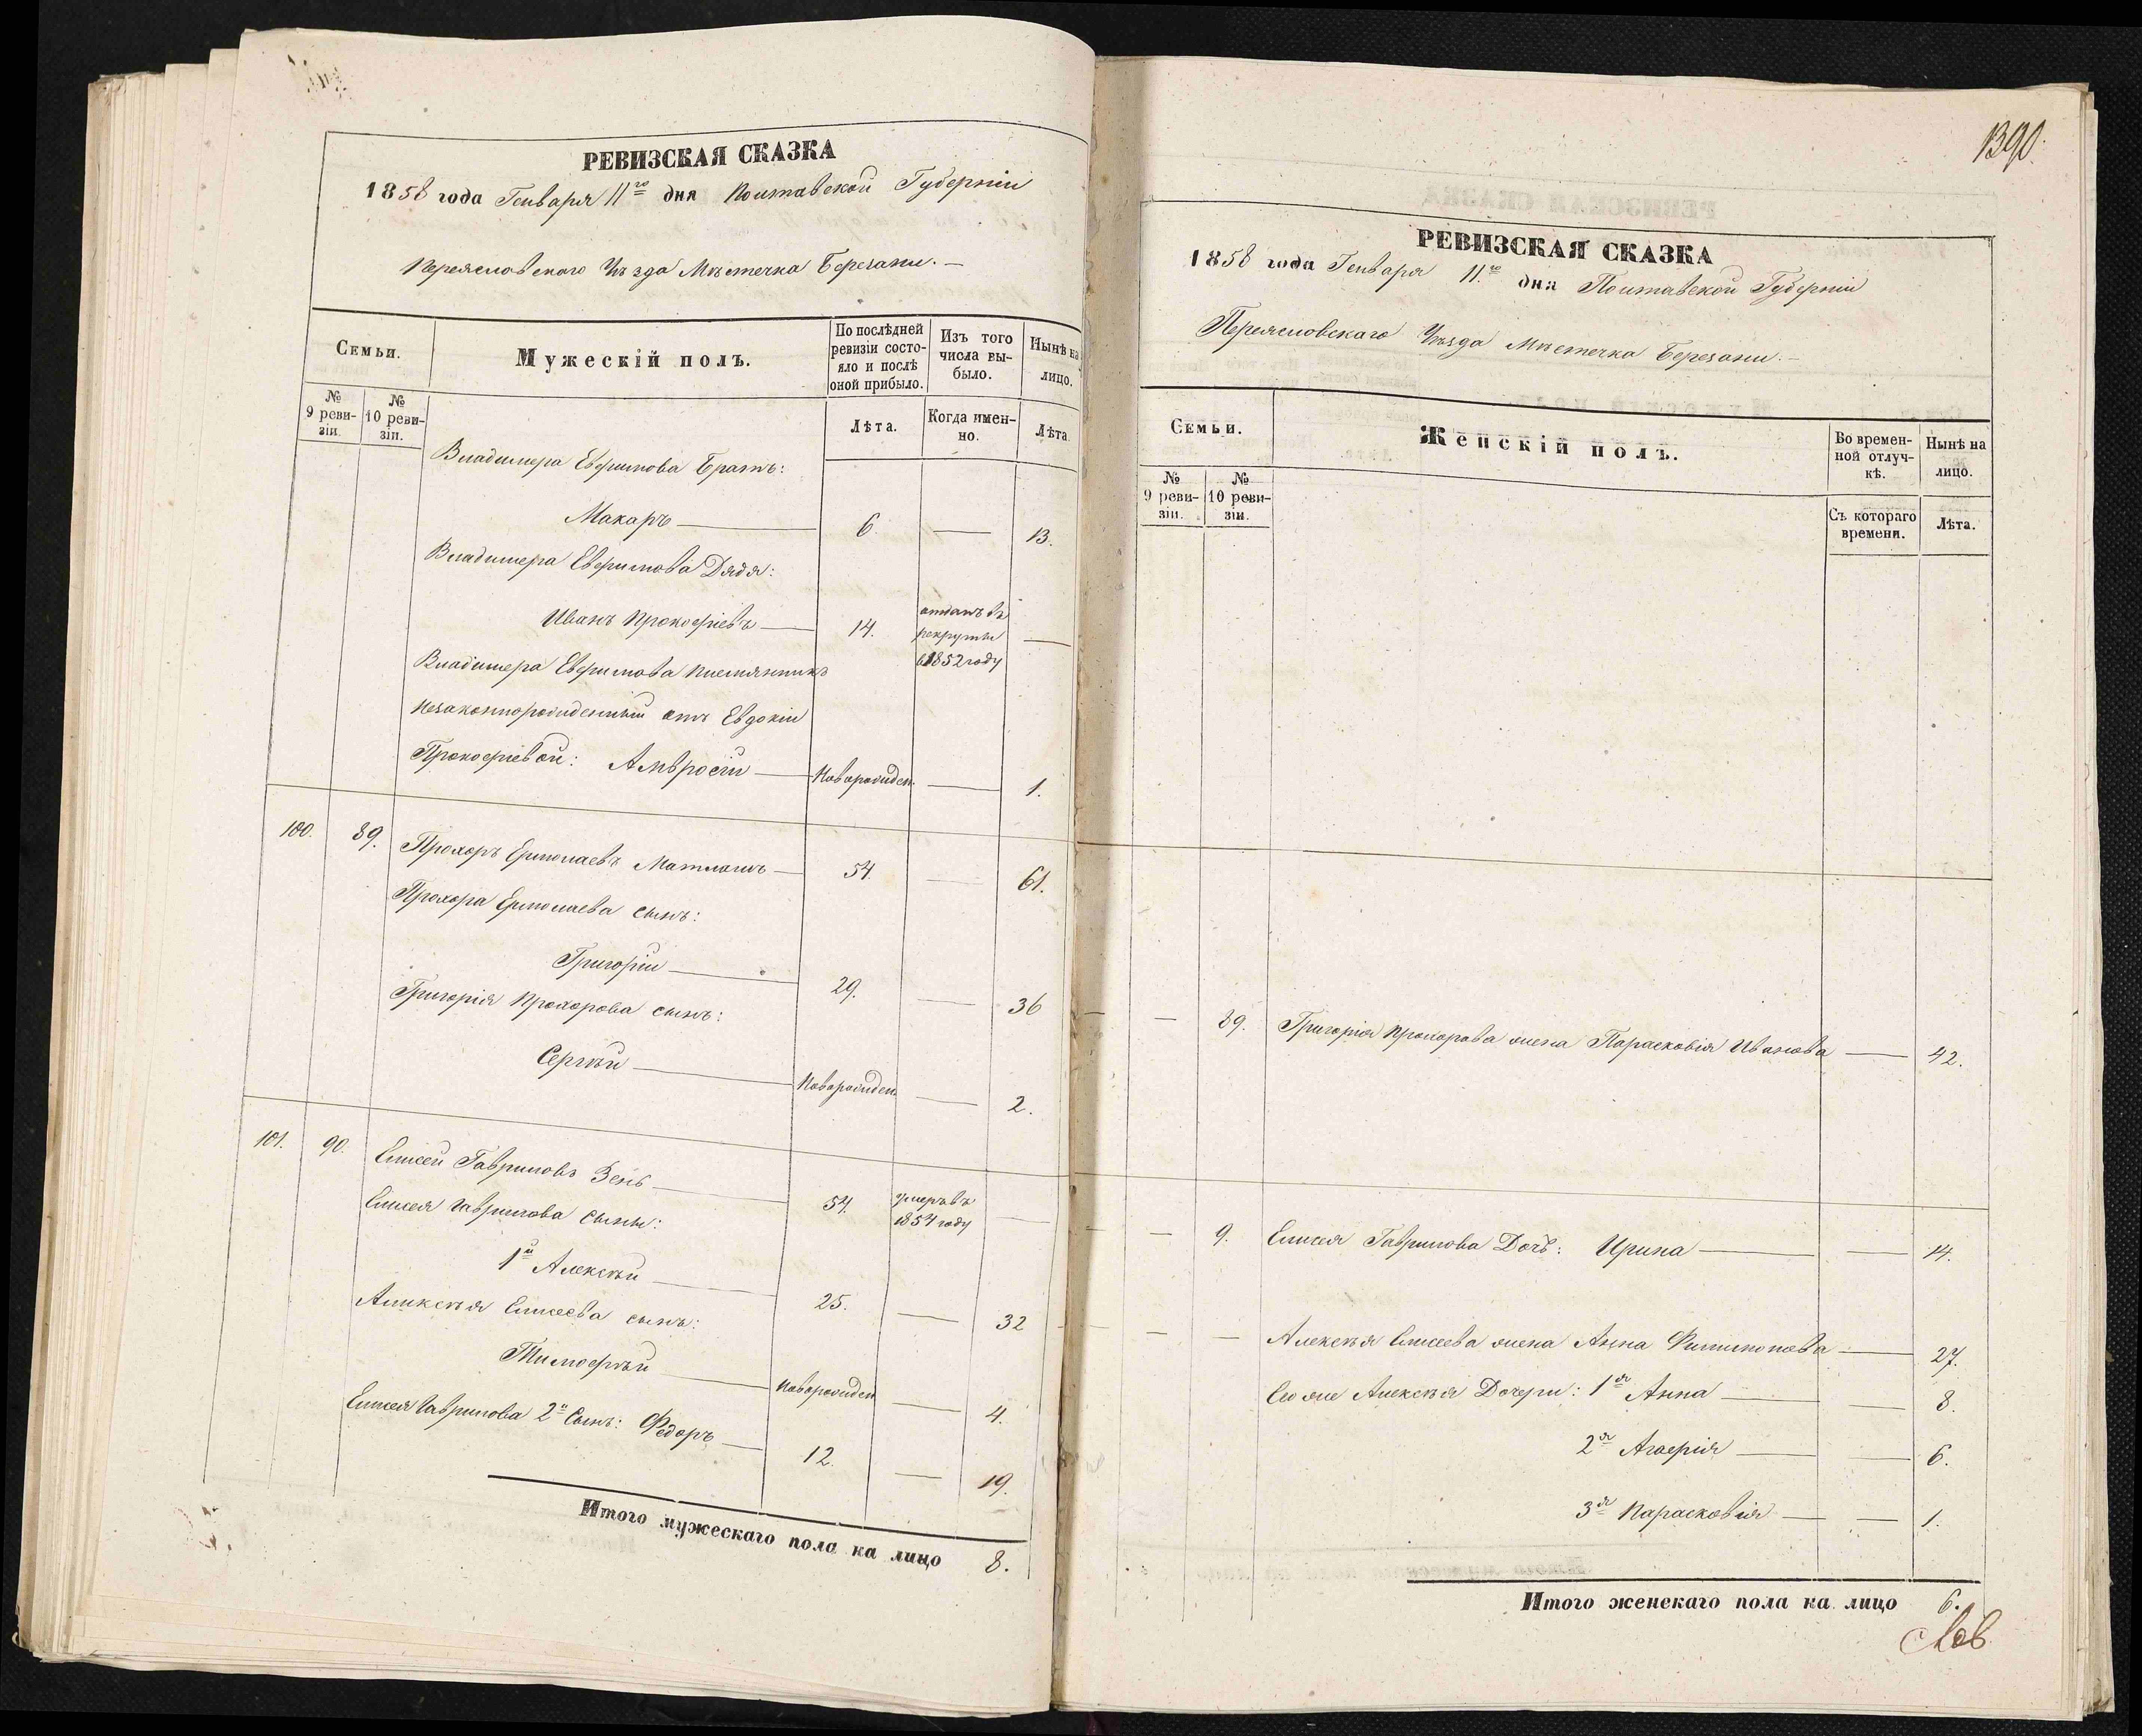 РЕВИЗСКАЯ СКАЗКА
1858 года Генваря 11го дня Полтавской Губерніи
Переясловского Уѣзда Мѣстечка Березани. —
Семьи.
Мужескій полъ.
По послѣдней ревизіи состояло и послѣ оной прибыло.
Изъ того числа выбыло.
Нынѣ на лицо.
№ 9 ревизіи.
№ 10 ревизіи.
Лѣта.
Когда именно.
Лѣта
Владимера Евфимова Братъ:
Макаръ — 6. — 13.
Владимера Евфимова Дядя:
Иванъ Прокофіевъ — 14. отданъ въ рекруты в 1852 году —
Владимера Евфимова племянникъ
незаконнорожденный отъ Евдокіи
Прокофіевой: Амвросій — Новорожден. — 1.
100. 89. Прохоръ Ермолаевъ Матлашъ — 54. — 61.
Прохора Ермолаева сынъ:
Григорій — 29. — 36
Григорія Прохорова сынъ:
Сергѣй — Новорожден — 2.
101. 90. Елисей Гавриловъ Зень — 54. умеръ въ 1854 году —
Елисея Гаврилова сыны:
1й Алексѣй — 25. — 32
Аликсѣя Елисеева сынъ:
Тимофѣй — Новорожден — 4.
Елисея Гаврилова 2й Сынъ: Федоръ — 12. — 19.
Итого мужескаго пола на лицо 8.
1390.
РЕВИЗСКАЯ СКАЗКА
1858 года Генваря 11го дня Полтавской Губерніи
Переясловскаго Уѣзда Мѣстечка Березани. —
Семьи.
Женскій полъ.
Во временной отлучкѣ.
Нынѣ на лицо.
№ 9 ревизіи.
№ 10 ревизіи.
Съ котораго времени.
Лѣта.
— 89. Григорія Прохорова жена Парасковія Иванова — 42.
— 9. Елисея Гаврилова Дочь: Ирина — — 14.
— — Алексѣя Елисеева жена Анна Филипопова — 27.
Его же Алексѣя Дочери: 1я Анна — — 8.
2я Агафія — — 6.
3я Парасковія — — 1.
Итого женскаго пола на лицо 6.